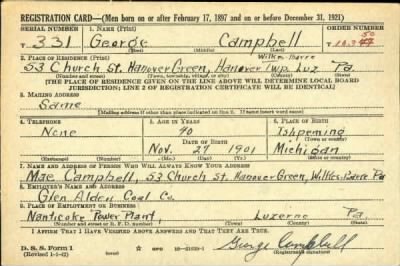 REGISTRATION CARD—(Men born on or after February 17, 1897 and on or before December 31, 1921)
SERIAL NUMBER 1. NAME (Print) ORDER NUMBER
T 331 George Campbell
(First) (Middle) (Last)
2. PLACE OF RESIDENCE (Print) Wilkes-Barre
53 Church St. Hanover Green, Hanover Twp. Luz Pa.
(Number and street) (Town, township, village, or city) (County) (State)
[THE PLACE OF RESIDENCE GIVEN ON THE LINE ABOVE WILL DETERMINE LOCAL BOARD
JURISDICTION; LINE 2 OF REGISTRATION CERTIFICATE WILL BE IDENTICAL]
3. MAILING ADDRESS
Same
[Mailing address if other than place indicated on line 2. If same insert word same]
4. TELEPHONE 5. AGE IN YEARS 6. PLACE OF BIRTH
None 40 Ishpeming
DATE OF BIRTH (Town or county)
Nov. 27 1901 Michigan
(Exchange) (Number) (Mo.) (Day) (Yr.) (State or country)
7. NAME AND ADDRESS OF PERSON WHO WILL ALWAYS KNOW YOUR ADDRESS
Mae Campbell, 53 Church St. Hanover Green, Wilkes-Barre Pa
8. EMPLOYER'S NAME AND ADDRESS
Glen Alden Coal Co.
9. PLACE OF EMPLOYMENT OR BUSINESS
Nanticoke Power Plant, Luzerne Pa.
(Number and street or R. F. D. number) (Town) (County) (State)
I AFFIRM THAT I HAVE VERIFIED ABOVE ANSWERS AND THAT THEY ARE TRUE.
D. S. S. Form 1 George Campbell
(Revised 1-1-42) GPO 16—21630-1 (Registrant's signature)